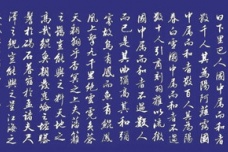 曰下里巴人國中屬而和者
數千人其為陽阿薤露國
中屬而和者數百人其為陽
春白雪國中屬而和者不過
數十人引商刻羽雜以流徵
國中屬而和者不過數人
而已是其曲彌高其和彌
寡故鳥有鳳而魚有鯤
鳳上擊九千里絕雲霓負蒼
天翱翔乎杳冥之上夫藩
籬之鷃豈能與之料天地之
高哉鯤魚朝發崑崙之墟
暴鬐於碣石暮宿於孟諸夫尺
澤之鯢豈能與之量江海之